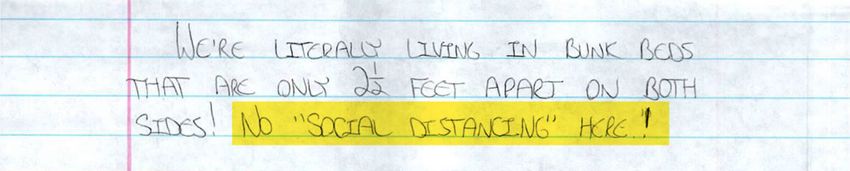 WE'RE LITERALLY LIVING IN BUNK BEDS
THAT ARE ONLY 2½ FEET APART ON BOTH
SIDES! NO "SOCIAL DISTANCING" HERE.!